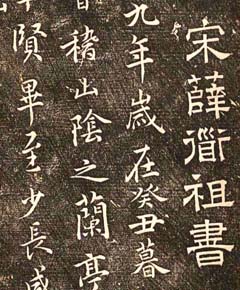 宋薛衜祖書
九年嵗在癸丑暮
會稽山陰之蘭亭
賢畢至少長咸